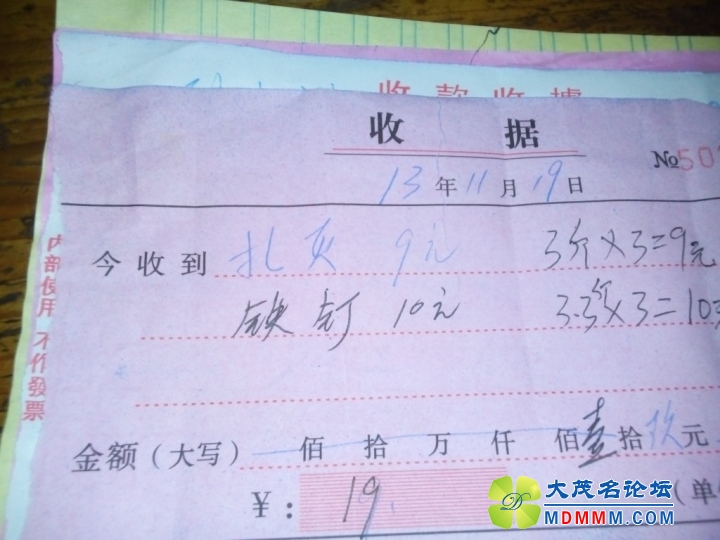 收款收據
收 据
№ 50
13 年 11 月 19 日
今收到 扎灰 9元 3斤×3=9元
铁钉 10元 3.3斤×3=10
金额（大写） 佰 拾 万 仟 佰 壹 拾 玖 元
￥： 19.
（单
内部使用 不作發票
大茂名论坛
MDMMM.COM